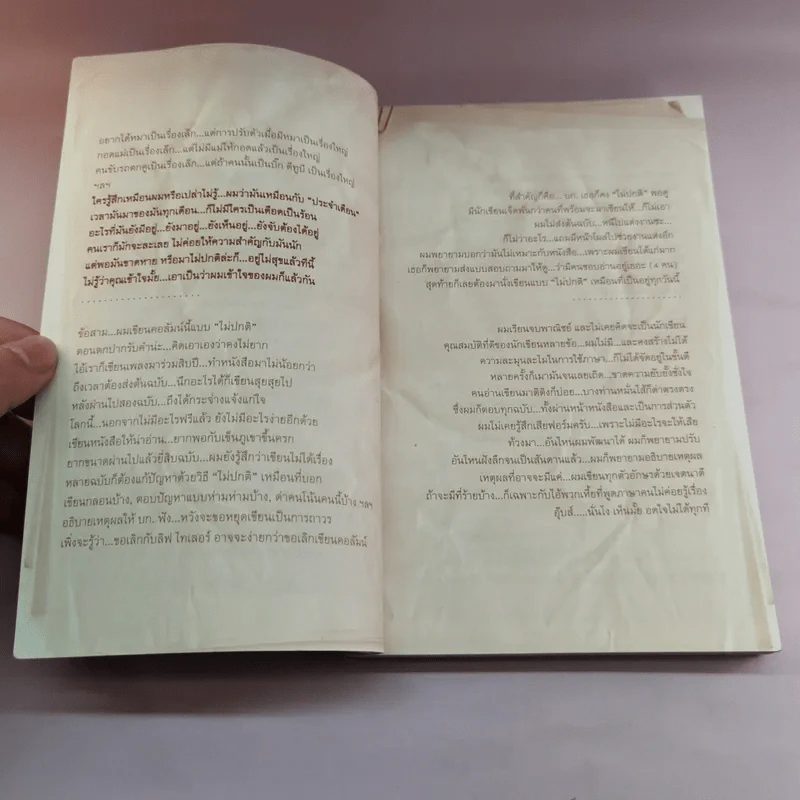 อยากได้หมาเป็นเรื่องเล็ก...แต่การปรับตัวเมื่อมีหมาเป็นเรื่องใหญ่
กอดแม่เป็นเรื่องเล็ก...แต่ไม่มีแม่ให้กอดแล้วเป็นเรื่องใหญ่
คนขับรถตกคูเป็นเรื่องเล็ก...แต่ถ้าคนนั้นเป็นบิ๊ก ดีทูบี เป็นเรื่องใหญ่
ฯลฯ
ใครรู้สึกเหมือนผมหรือเปล่าไม่รู้...ผมว่ามันเหมือนกับ "ประจำเดือน"
เวลามันมาของมันทุกเดือน...ก็ไม่มีใครเป็นเดือดเป็นร้อน
อะไรที่มันยังมีอยู่...ยังมาอยู่...ยังเห็นอยู่...ยังจับต้องได้อยู่
คนเราก็มักจะละเลย ไม่ค่อยให้ความสำคัญกับมันนัก
แต่พอมันขาดหาย หรือมาไม่ปกติล่ะก็...อยู่ไม่สุขแล้วทีนี้
ไม่รู้ว่าคุณเข้าใจมั้ย...เอาเป็นว่าผมเข้าใจของผมก็แล้วกัน
. . . . . . . . . . . . . . . . . .
ข้อสาม...ผมเขียนคอลัมน์นี้แบบ "ไม่ปกติ"
ตอนตกปากรับคำน่ะ...คิดเอาเองว่าคงไม่ยาก
ไอ้เราก็เขียนเพลงมาร่วมสิบปี...ทำหนังสือมาไม่น้อยกว่า
ถึงเวลาต้องส่งต้นฉบับ...นึกอะไรได้ก็เขียนสุยสุยไป
หลังผ่านไปสองฉบับ...ถึงได้กระจ่างแจ้งแก่ใจ
โลกนี้...นอกจากไม่มีอะไรฟรีแล้ว ยังไม่มีอะไรง่ายอีกด้วย
เขียนหนังสือให้น่าอ่าน...ยากพอกับเข็นภูเขาขึ้นครก
ยากขนาดผ่านไปแล้วยี่สิบฉบับ...ผมยังรู้สึกว่าเขียนไม่ได้เรื่อง
หลายฉบับก็ต้องแก้ปัญหาด้วยวิธี "ไม่ปกติ" เหมือนที่บอก
เขียนกลอนบ้าง, ตอบปัญหาแบบห่ามห่ามบ้าง, ด่าคนโน้นคนนี้บ้าง ฯลฯ
อธิบายเหตุผลให้ บก. ฟัง...หวังจะขอหยุดเขียนเป็นการถาวร
เพิ่งจะรู้ว่า...ขอเลิกกับลิฟ ไทเลอร์ อาจจะง่ายกว่าขอเลิกเขียนคอลัมน์
ที่สำคัญก็คือ... บก. เธอก็คง "ไม่ปกติ" พอดู
มีนักเขียนเจ็ดพันกว่าคนที่พร้อมจะมาเขียนให้...ก็ไม่เอา
ผมไม่ส่งต้นฉบับ...หนีไปแต่งงานซะ...
ก็ไม่ว่าอะไร...แถมมีหน้าโผล่ไปช่วยงานแต่งอีก
ผมพยายามบอกว่ามันไม่เหมาะกับหนังสือ...เพราะผมเขียนได้แก่มาก
เธอก็พยายามส่งแบบสอบถามมาให้ดู...ว่ามีคนชอบอ่านอยู่เยอะ (๔ คน)
สุดท้ายก็เลยต้องมานั่งเขียนแบบ "ไม่ปกติ" เหมือนที่เป็นอยู่ทุกวันนี้
. . . . . . . . . . . . . . . . . .
ผมเรียนจบพาณิชย์ และไม่เคยคิดจะเป็นนักเขียน
คุณสมบัติที่ดีของนักเขียนหลายข้อ...ผมไม่มี...และคงสร้างไม่ได้
ความละมุนละไมในการใช้ภาษา...ก็ไม่ได้จัดอยู่ในขั้นดี
หลายครั้งก็เมามันจนเลยเถิด...ขาดความยับยั้งชั่งใจ
คนอ่านเขียนมาติติงก็บ่อย...บางท่านหมั่นไส้ก็ด่าตรงตรง
ซึ่งผมก็ตอบทุกฉบับ...ทั้งผ่านหน้าหนังสือและเป็นการส่วนตัว
ผมไม่เคยรู้สึกเสียฟอร์มครับ...เพราะไม่มีอะไรจะให้เสีย
ท้วงมา...อันไหนผมพัฒนาได้ ผมก็พยายามปรับ
อันไหนฝังลึกจนเป็นสันดานแล้ว...ผมก็พยายามอธิบายเหตุผล
เหตุผลที่อาจจะมีแค่...ผมเขียนทุกตัวอักษรด้วยเจตนาดี
ถ้าจะมีที่ร้ายบ้าง...ก็เฉพาะกับไอ้พวกเหี้ยที่พูดภาษาคนไม่ค่อยรู้เรื่อง
อุ๊บส์.....นั่นไง เห็นมั้ย อดใจไม่ได้ทุกที